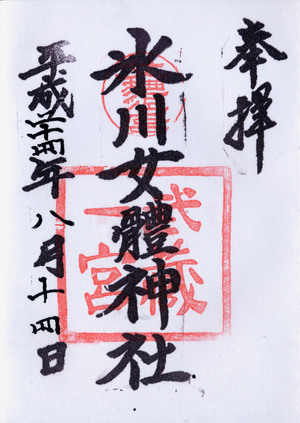 奉拝
氷川女體神社
武蔵
一宮
平成廿四年八月十四日